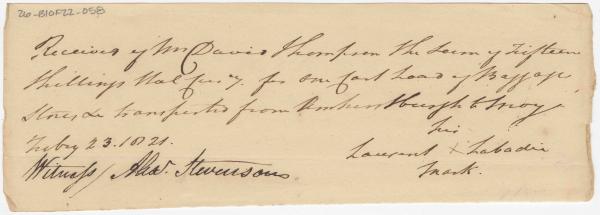 26-B10F22-058
Received of Mr David Thompson the Sum of Fifteen
Shillings Hal Cur'y. for one Cart Load of Baggage
Stores &c transported from Amherstburgh to
Feby 23. 1821.
his
Laurent X Labadie
mark.
Witness / Alexr. Stevenson